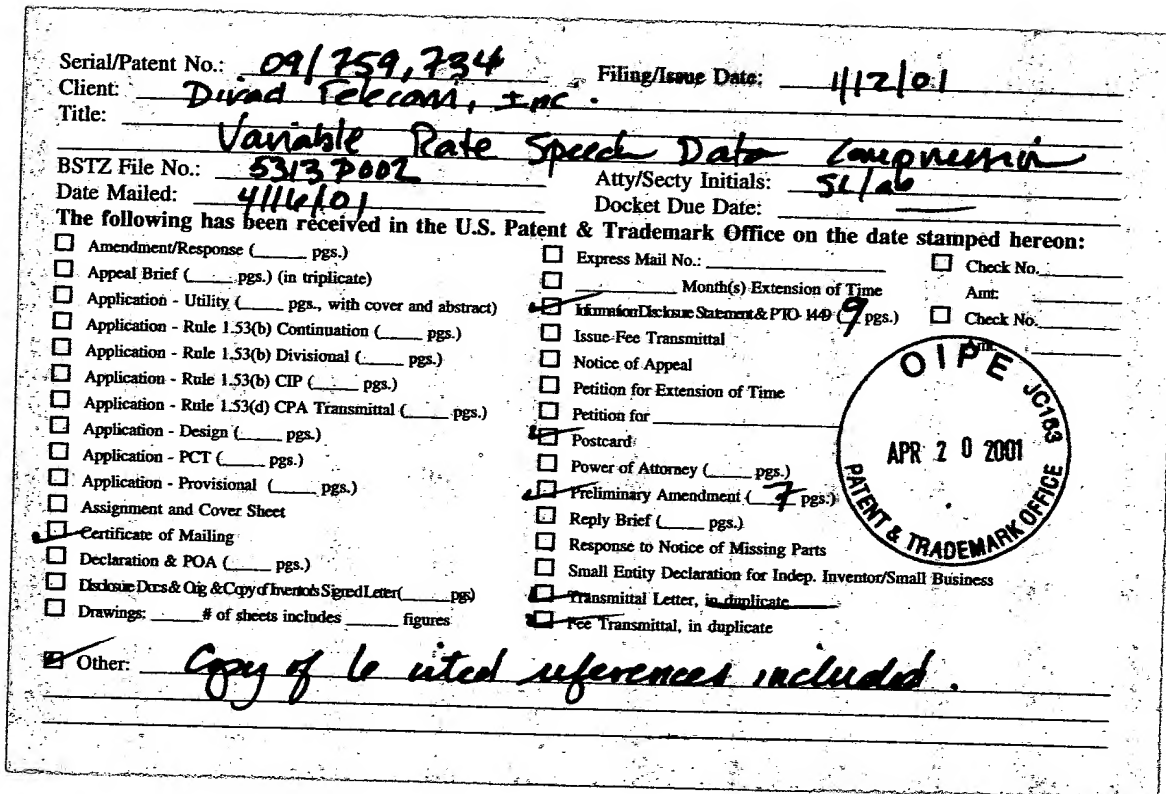 Serial/Patent No.: 09/759,734 Filing/Issue Date: 1/12/01
Client: Divad Telecom, Inc.
Title:
Variable Rate Speech Data Compression
BSTZ File No.: 5313P002 Atty/Secty Initials: SL/
Date Mailed: 4/16/01 Docket Due Date:
The following has been received in the U.S. Patent & Trademark Office on the date stamped hereon:
Amendment/Response (_____ pgs.)
Appeal Brief (____ pgs.) (in triplicate)
Application - Utility (____ pgs., with cover and abstract)
Application - Rule 1.53(b) Continuation (____ pgs.)
Application - Rule 1.53(b) Divisional (____ pgs.)
Application - Rule 1.53(b) CIP (____ pgs.)
Application - Rule 1.53(d) CPA Transmittal (____ pgs.)
Application - Design (____ pgs.)
Application - PCT (____ pgs.)
Application - Provisional (____ pgs.)
Assignment and Cover Sheet
Certificate of Mailing
Declaration & POA (____ pgs.)
Disclosure Docs & Orig & Copy of Inventor's Signed Letter(____pgs)
Drawings: _____# of sheets includes _____ figures
Express Mail No.:
_________ Month(s) Extension of Time
Information Disclosure Statement & PTO-1449 (9 pgs.)
Issue Fee Transmittal
Notice of Appeal
Petition for Extension of Time
Petition for
Postcard
Power of Attorney (____ pgs.)
Preliminary Amendment (7 pgs.)
Reply Brief (____ pgs.)
Response to Notice of Missing Parts
Small Entity Declaration for Indep. Inventor/Small Business
Transmittal Letter, in duplicate
Fee Transmittal, in duplicate
Check No.
Amt:
Check No.
Amt:
OIPE JC163
APR 20 2001
PATENT & TRADEMARK OFFICE
Other: Copy of 6 cited references included.